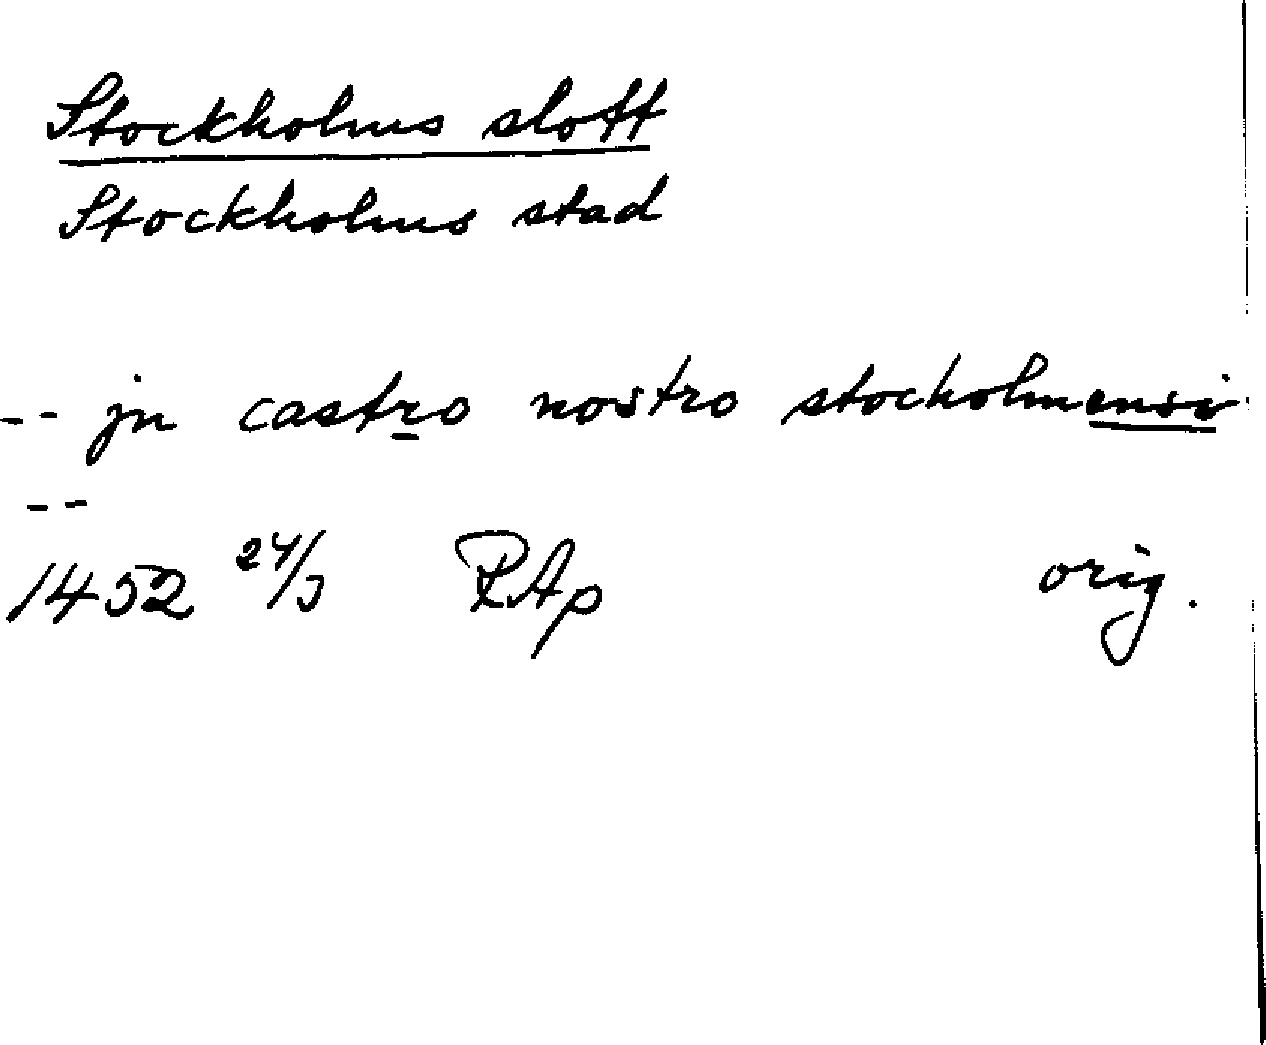 Stockholms slott
Stockholms stad
-- jn castro nostro stockolmensi
--
1452 24/3 RAp orig.